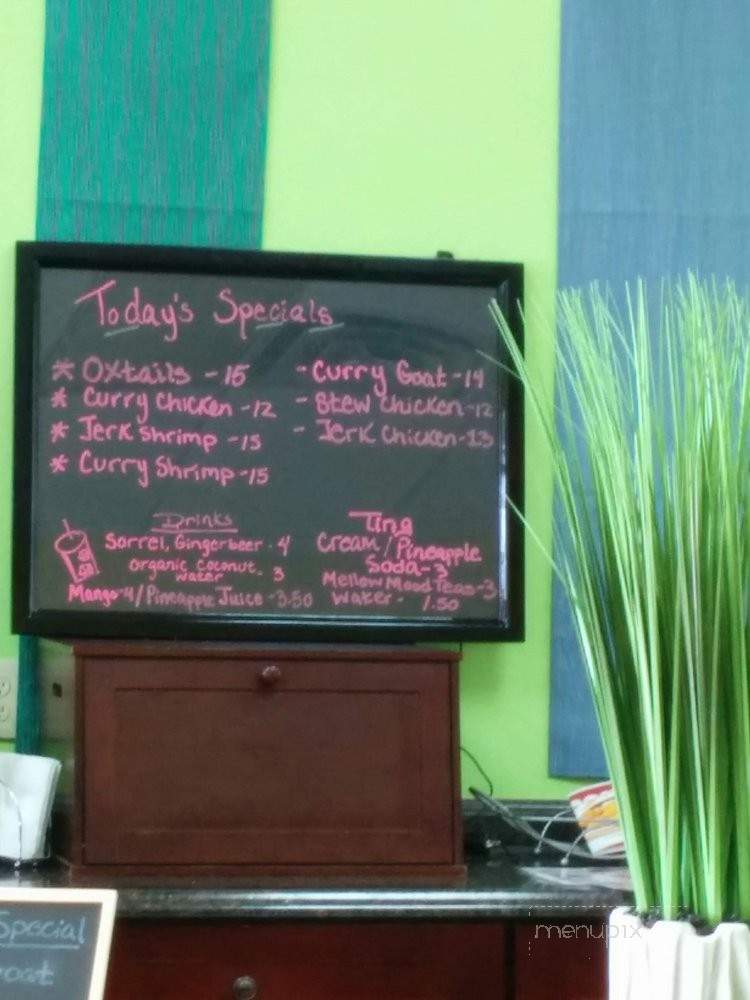 Today's Specials
* Oxtails - 15
* Curry Chicken - 12
* Jerk Shrimp - 15
* Curry Shrimp - 15
- Curry Goat - 14
- Stew Chicken - 12
- Jerk Chicken - 13
Drinks
Sorrel, Gingerbeer - 4
Organic Coconut
water - 3
Mango - 4 / Pineapple Juice - 3.50
Ting
Cream / Pineapple
Soda - 3
Mellow Mood Teas - 3
Water - 1.50
Special
menupix